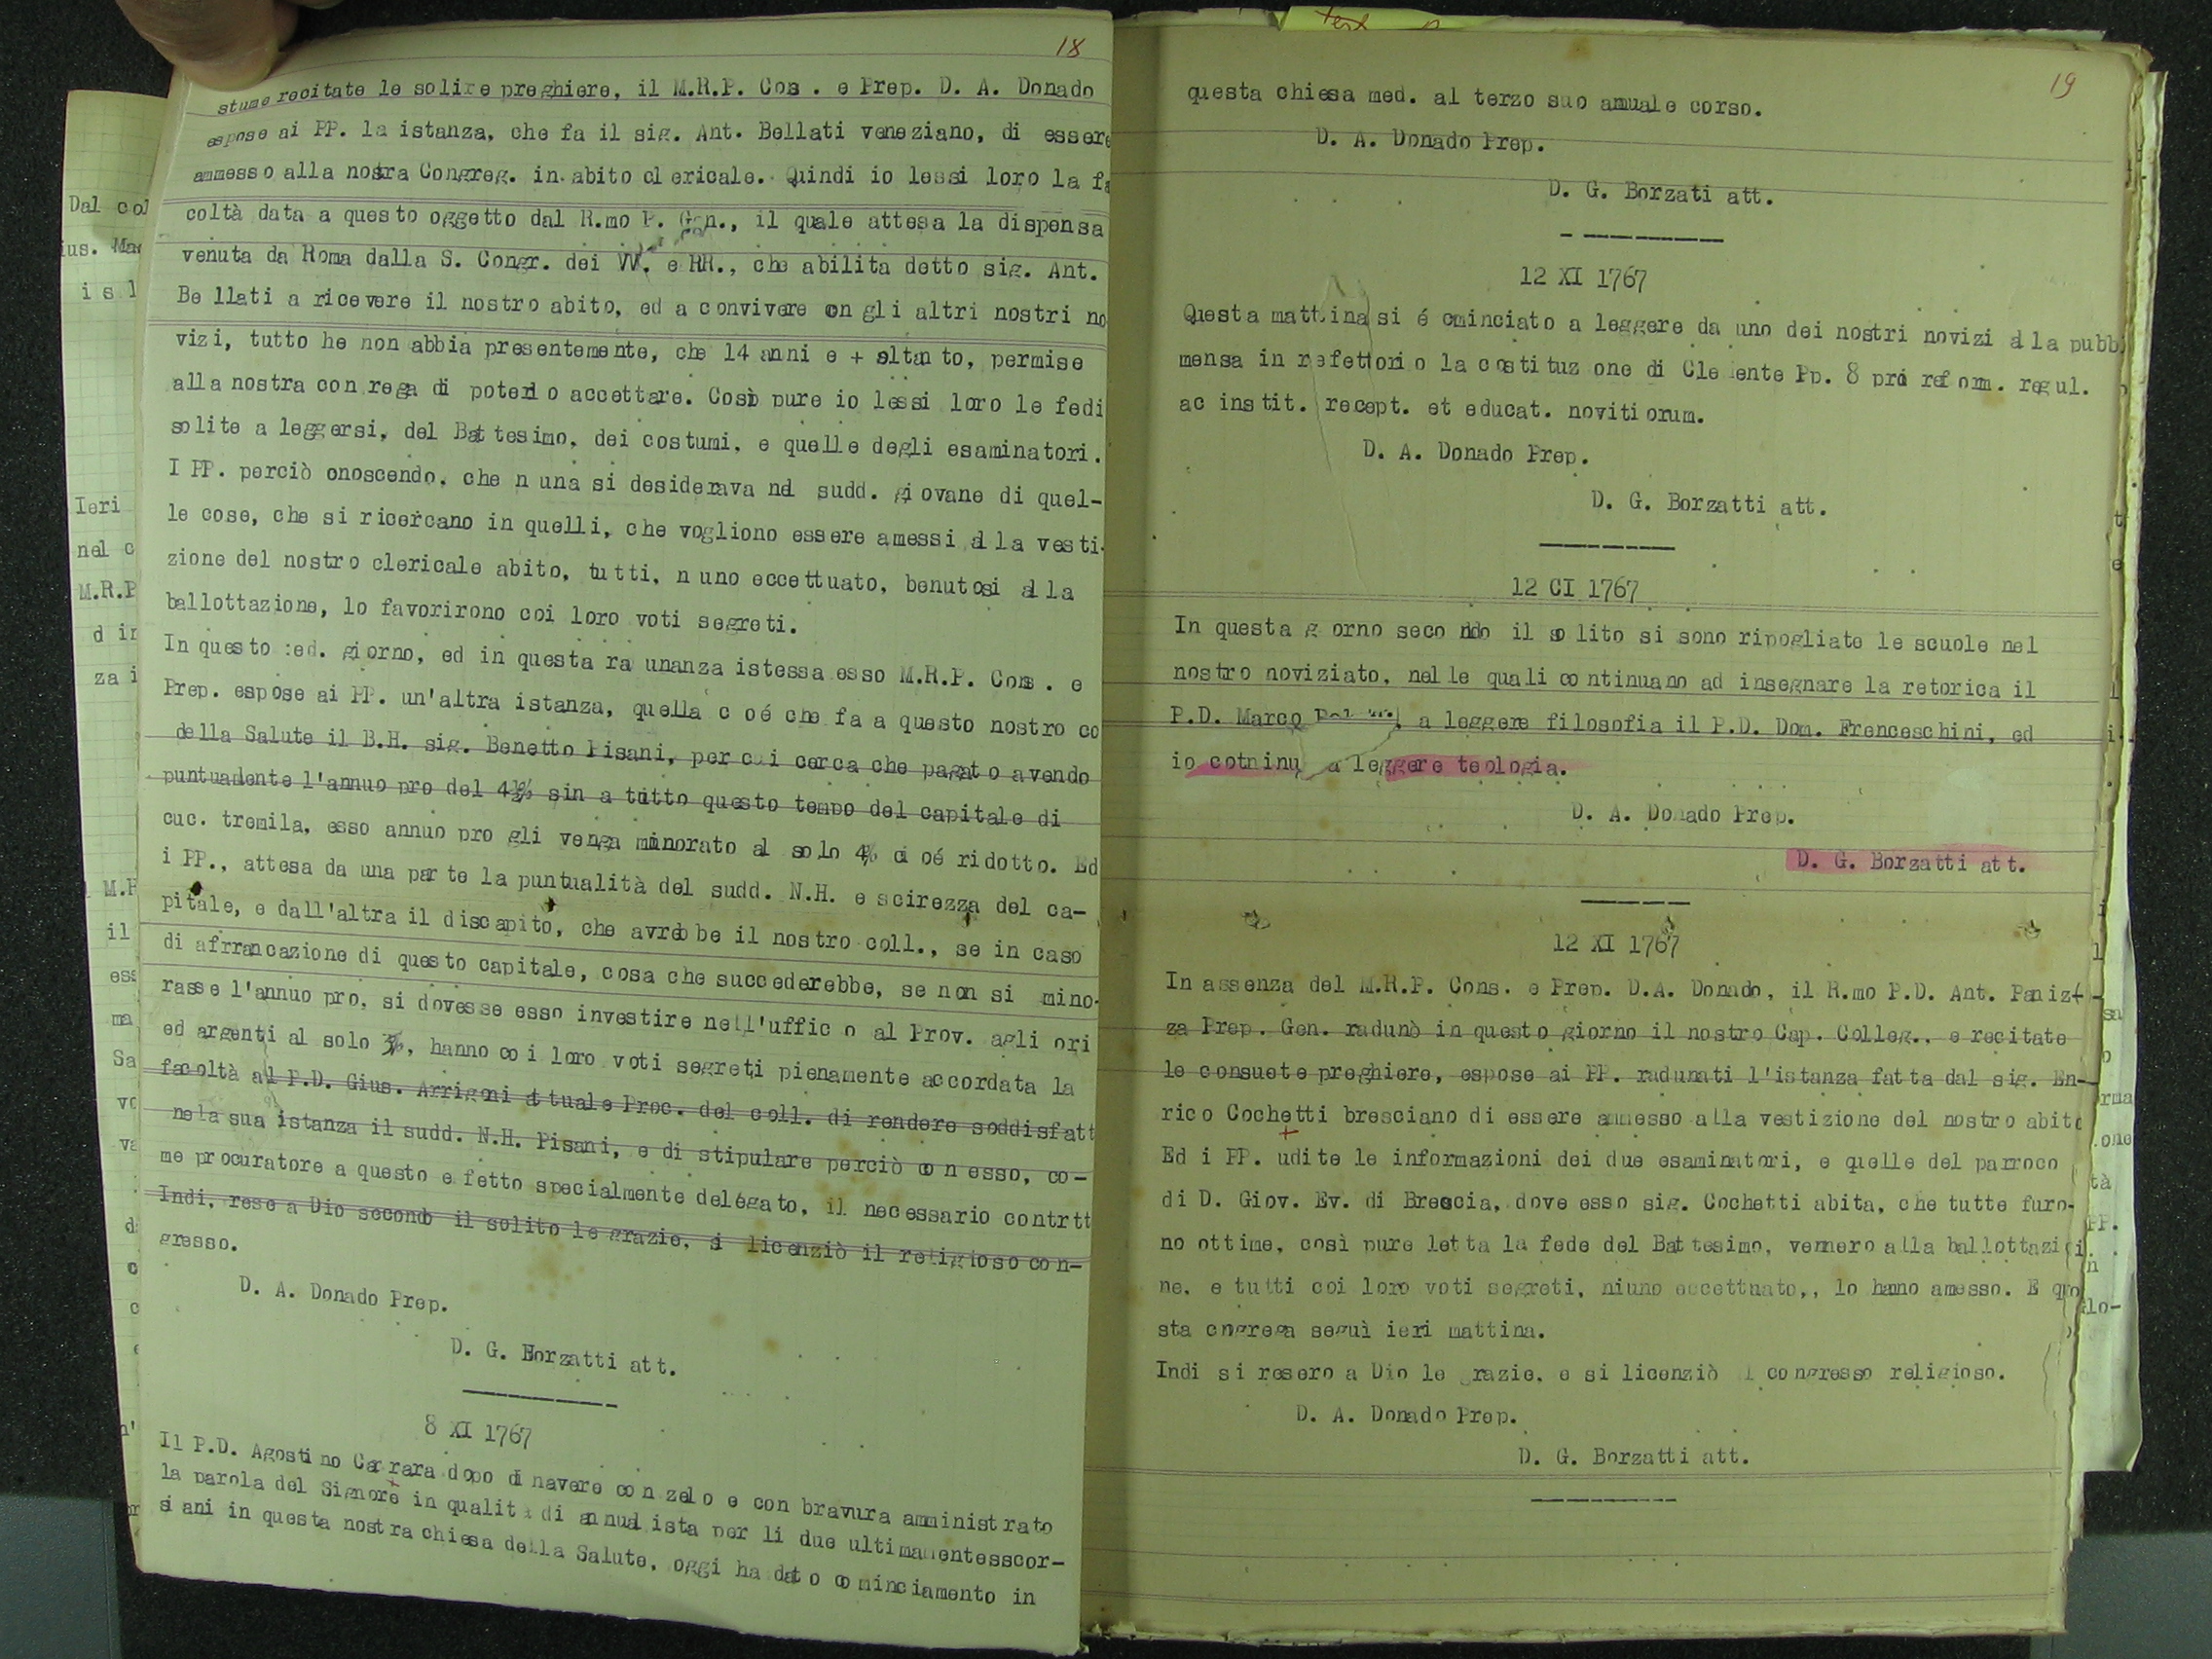 18
stume recitate le solire preghiere, il M.R.P. Cos . e Prep. D. A. Donado
espose ai PP. la istanza, che fa il sig. Ant. Bellati veneziano, di essere
ammesso alla nostra Congreg. in abito clericale. Quindi io lessi loro la fa
coltà data a questo oggetto dal R.mo P. Gen., il quale attesa la dispensa
venuta da Roma dalla S. Congr. dei VV. e RR., che abilita detto sig. Ant.
Be llati a ricevere il nostro abito, ed a convivere on gli altri nostri no
vizi, tutto he non abbia presentemente, che 14 anni e + sltan to, permise
alla nostra con rega di poterl o accettare. Così pure io lessi loro le fedi
solite a leggersi, del Bat tesimo, dei costumi, e quelle degli esaminatori.
I PP. perciò onoscendo, che n una si desiderava nel sudd. giovane di quel-
le cose, che si ricercano in quelli, che vogliono essere amessi al la vesti-
zione del nostro clericale abito, tutti, n uno eccettuato, benutosi al la
ballottazione, lo favorirono coi loro voti segreti.
In questo :ed. giorno, ed in questa ra unanza istessa esso M.R.P. Cons . e
Prep. espose ai PP. un'altra istanza, quella c oé che fa a questo nostro co
della Salute il B.H. sig. Benetto Pisani, per cui cerca che pagat o avendo
puntualente l'annuo pro del 4½% sin a tutto questo tempo del capitale di
cuc. tremila, esso annuo pro gli venga minorato al solo 4% ci oé ridotto. Ed
i PP., attesa da una par te la puntualità del sudd. N.H. e scirezza del ca-
pitale, e dall'altra il discapito, che avreb be il nostro coll., se in caso
di afrrancazione di questo capitale, cosa che succederebbe, se non si mino-
rasse l'annuo pro, si dovesse esso investire nell'uffic o al Prov. agli ori
ed argenti al solo 3%, hanno co i loro voti segreti pienamente accordata la
facoltà al P.D. Gius. Arrigoni attuale Proc. del coll. di rendere soddisfatt
nela sua istanza il sudd. N.H. Pisani, e di stipulare perciò co n esso, co-
me procuratore a questo e fetto specialmente delegato, il necessario contrtt
Indi, rese a Dio secondo il solito le grazie, si licenziò il religioso con-
gresso.
D. A. Donado Prep.
D. G. Borzatti att.
8 XI 1767
Il P.D. Agosti no Carrara dopo di navere co n zelo e con bravura amministrato
la parola del Signore in qualit à di annual ista per li due ultimamentesscor-
si ani in questa nostra chiesa della Salute, oggi ha dat o co minciamento in
19
questa chiesa med. al terzo suo annuale corso.
D. A. Donado Prep.
D. G. Borzati att.
12 XI 1767
Questa mattina si é cminciato a leggere da uno dei nostri novizi al la pubb
mensa in refettori o la costituz one di Cle ente Pp. 8 pro reform. regul.
ac instit. recept. et educat. noviti orum.
D. A. Donado Prep.
D. G. Borzatti att.
12 CI 1767
In questa g orno seco ndo il so lito si sono ripogliate le scuole nel
nostro noviziato, nel le quali co ntinuano ad insegnare la retorica il
P.D. Marco a leggere filosofia il P.D. Dom. Frenceschini, ed
io cotninu a leggere teologia.
D. A. Donado Prep.
D. G. Borzatti att.
12 XI 1767
In assenza del M.R.P. Cons. e Prep. D.A. Donado, il R.mo P.D. Ant. Paniz-
za Prep. Gen. radunò in questo giorno il nostro Cap. Colleg., e recitate
le consuete preghiere, espose ai PP. radunati l'istanza fatta dal sig. En-
rico Cochetti bresciano di essere ammesso alla vestizione del nostro abito
Ed i PP. udite le informazioni dei due esaminatori, e quelle del parroco
di D. Giov. Ev. di Brescia, dove esso sig. Cochetti abita, che tutte furo-
no ottime, così pure letta la fede del Bat tesimo, vennero alla ballottazi
ne, e tutti coi loro voti segreti, niuno eccettuato,, lo hanno amesso. E que
sta cngrega seguì ieri mattina.
Indi si resero a Dio le razie, e si licenziò l congresso religioso.
D. A. Donado Prep.
D. G. Borzatti att.